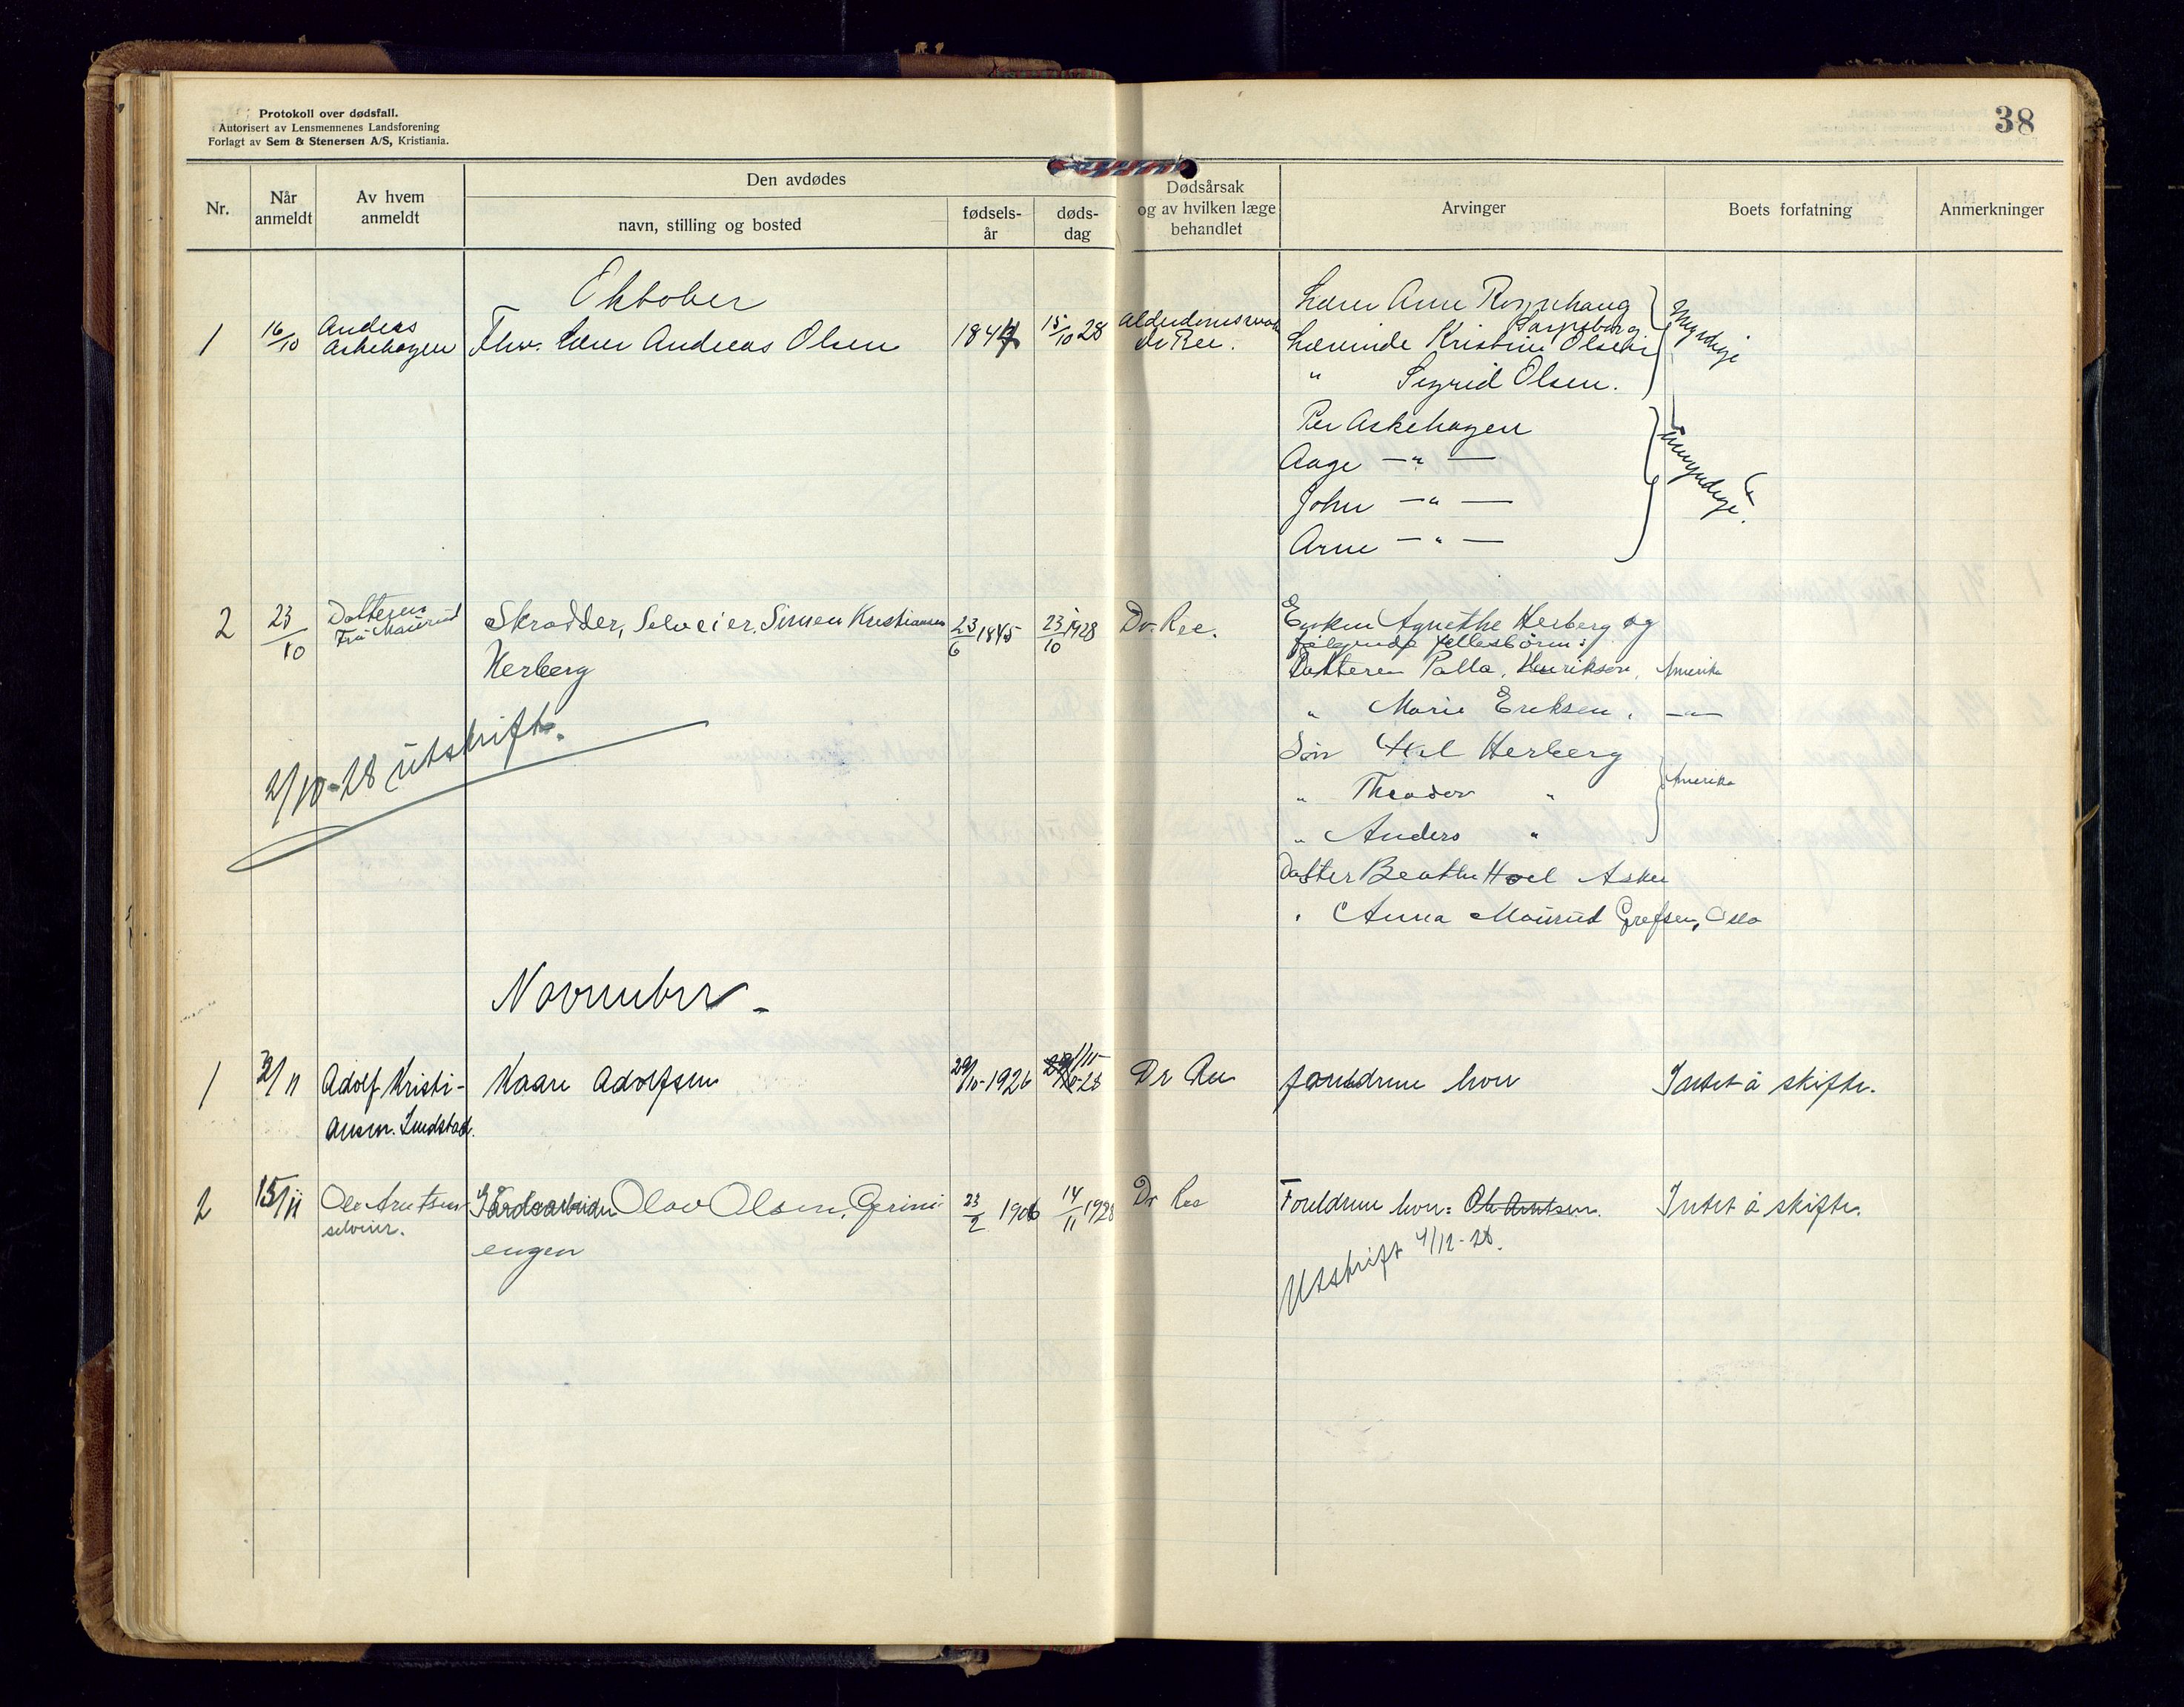 Protokoll over dødsfall.
Autorisert av Lensmennenes Landsforening
Forlagt av Sem & Stenersen A/S, Kristiania.
38
Nr.
Når anmeldt
Av hvem anmeldt
Den avdødes
navn, stilling og bosted
fødselsår
dødsdag
Dødsårsak og av hvilken læge behandlet
Arvinger
Boets forfatning
Anmerkninger
Oktober
1 16/10 Anders Askehagen Fhv. Lærer Andreas Olsen 1847 15/10 28 Dr Ree.
Lærer Arne
Sarpsborg
Lærerinde Kristine Olsen
" Sigrid Olsen.
Myndige
Per Askehagen
Aage — " —
John — " —
Arne — " —
Umyndige.
2 23/10 Datteren Fru Maurud Skrædder, Selveier, Simen Kristiansen 23/6 1845 23/10 1928 Dr. Ree.
Herberg
Enken Agnethe Herberg og
følgende fellesbörn:
Datteren Palla Henriksen, Amerika
" Marie Eriksen, — " —
Sön Axel Herberg
" Theodor "
" Anders "
Amerika
Datter Beathe Hoel Asker
" Anna Maurud Grefsen, Oslo
2/10-28 utskrift.
November -
1 2/11 Adolf Kristi- Kaare Adolfsen 29/10-1926 1/11-28 Dr Ree foreldrene lever Intet å skifte.
ansen. Lundstad.
2 15/11 Ole Arntsen Gårdsarbeider Olav Olsen, Grini- 23/2 1906 14/11 1928 Dr Ree Foreldrene lever: Ole Arntsen. Intet å skifte.
selveier. engen
Utskrift 4/12-28.